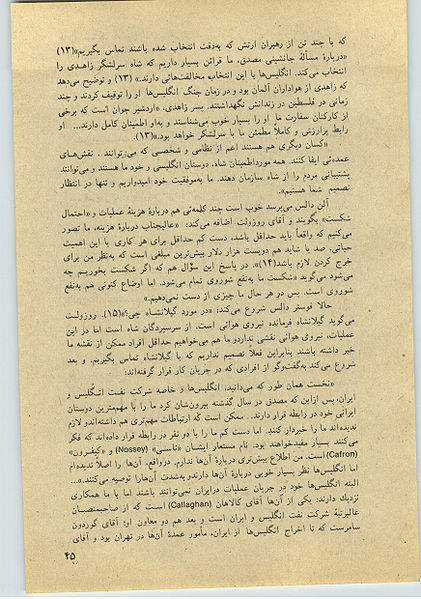 که با چند تن از رهبران ارتش که به‌دقت انتخاب شده باشند تماس بگیریم»(۱۳)
«دربارهٔ مسألهٔ جانشینی مصدق، ما قرائن بسیار داریم که شاه سرلشگر زاهدی را
انتخاب می‌کند. انگلیس‌ها با این انتخاب مخالفت‌هائی دارند.» (۱۳) و توضیح می‌دهد
که زاهدی از هواداران آلمان بود و در زمان جنگ انگلیس‌ها او را توقیف کردند و چند
زمانی در فلسطین در زندانش نگهداشتند. پسر زاهدی، «اردشیر جوان است که برخی
از کارکنان سفارت ما او را بسیار خوب می‌شناسند و به‌او اطمینان کامل دارند... او
رابط پرارزش و کاملاً مطمئن ما با سرلشگر خواهد بود.»(۱۳).
«کسان دیگری هم هستند اعم از نظامی و شخصی که می‌توانند . نقش‌های
عمده‌ئی ایفا کنند. همه مورداطمینان شاه، دوستان انگلیسی و خود ما هستند و می‌توانند
پشتیبانی مردم را از شاه سازمان دهند. ما به‌موفقیت خود امیدواریم و تنها در انتظار
تصمیم شما هستیم».
آلن دالس می‌پرسد خوب است چند کلمه‌ئی هم دربارهٔ هزینهٔ عملیات و «احتمال
شکست» بگویند و آقای روزولت اضافه می‌کند: «عالیجناب دربارهٔ هزینه، ما تصور
می‌کنیم که واقعاً باید حداقل باشد، دست کم حداقل برای هر کاری با این اهمیت
حیاتی. صد یا شاید هم دویست هزار دلار بیش‌ترین مبلغی است که به‌نظر من برای
خرج کردن لازم باشد(۱۴)». در پاسخ این سؤال هم که اگر شکست بخوریم چه
می‌شود می‌گوید «شکست ما به‌نفع شوروی تمام می‌شود. اما اوضاع کنونی هم به‌نفع
شوروی است. پس در هر حال ما چیزی از دست نمی‌دهیم.»
حالا فوستر دالس شروع می‌کند: «در مورد گیلانشاه چی؟»(۱۵). روزولت
می‌گوید گیلانشاه فرمانده نیروی هوائی است. از سرسپردگان شاه است اما در این
عملیات، نیروی هوائی نقشی ندارد و ما هم می‌خواهیم حداقل افراد ممکن از نقشه ما
خبر داشته باشند بنابراین فعلاً تصمیم نداریم که با گیلانشاه تماس بگیریم. و بعد
شروع می‌کند به‌گفت‌وگو از افرادی که در جریان کار قرار گرفته‌اند:
«نخست همان طور که می‌دانید، انگلیس‌ها و خاصه شرکت نفت انگلیس و
ایران، پس ازاین که مصدق در سال گذشته بیرون‌شان کرد ما را با مهم‌ترین دوستان
ایرانی خود در رابطه قرار دارند. ممکن است که ارتباطات مهم‌تری هم داشته‌اند و لازم
ندیده‌اند ما را خبردار کنند. اما دست کم ما را با دو نفر در رابطه قرار داده‌اند که فکر
می‌کنند بسیار مفیدخواهند بود. نام مستعار ایشان «ناسی» (Nossey) و «کیفرون»
(Cafron) است. من اطلاع بیش‌تری دربارهٔ آن‌ها ندارم. درواقع، آن‌ها را اصلاً ندیده‌ام
اما انگلیس‌ها نظر بسیار خوبی دربارهٔ آن‌ها دارند و به‌شدت آن‌ها را توصیه می‌کنند.»...
البته انگلیس‌ها خود در جریان عملیات درایران نمی‌توانند باشند اما با ما همکاری
نزدیک دارند: یکی از آن‌ها آقای کالاهان (Callaghan) است که از صاحبمنصبان
عالیرتبهٔ شرکت نفت انگلیس و ایران است و بعد هم دو معاون او: آقای گوردون
سامرست که تا اخراج انگلیس‌ها از ایران، مأمور عمدهٔ آن‌ها در تهران بود و آقای
۴۵